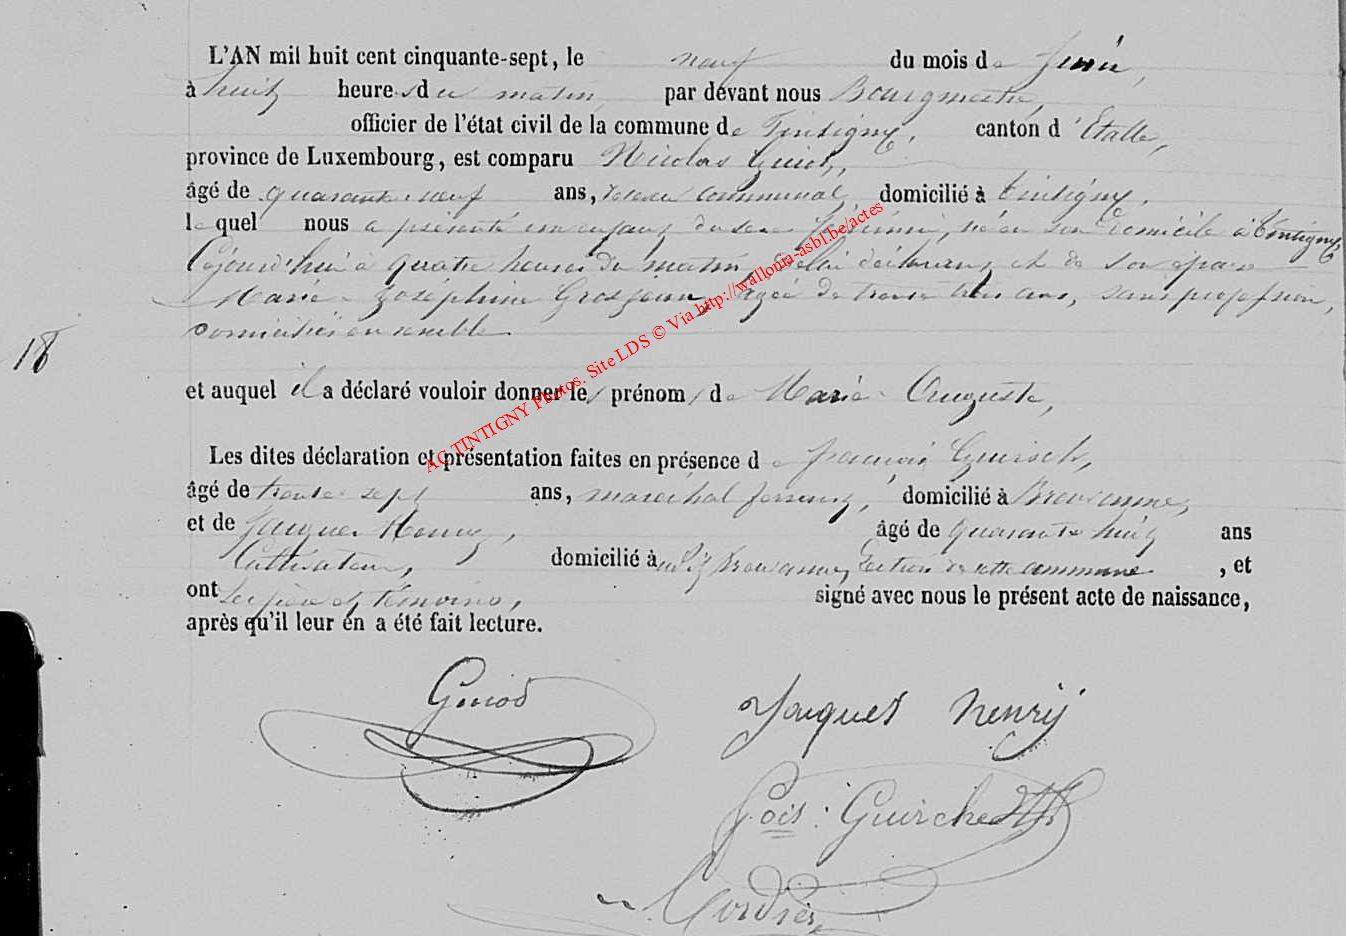 L'AN mil huit cent cinquante-sept, le neuf du mois de Juin,
à huit heures du matin, par dévant nous Bourgmestre,
officier de l'état civil de la commune de Tintigny, canton d'Etalle,
province de Luxembourg, est comparu Nicolas Guiot,
âgé de quarante neuf ans, communal, domicilié à Tintigny,
lequel nous a présenté un enfant du sexe féminin, né en son domicile à Tintigny
Cejourd'hui à quatre heures du matin, de lui déclarant et de son épouse
Marie Joséphine Grosjean, âgée de trente trois ans, sans profession,
domiciliés ensemble
18
et auquel il a déclaré vouloir donner les prénoms de Marie Auguste,
Les dites déclaration et présentation faites en présence de François Guirsch,
âgé de trente sept ans, maréchal ferrant, domicilié à Breuvanne,
et de Jacques Henry, âgé de quarante huit ans
Cultivateur, domicilié à Breuvanne, Section de cette commune , et
ont les père et témoins, signé avec nous le présent acte de naissance,
après qu'il leur en a été fait lecture.
Guiot
Jacques henry
fçois : Guirche
AC TINTIGNY Photos. Site LDS © Via http://wallonia-asbl.be/actes